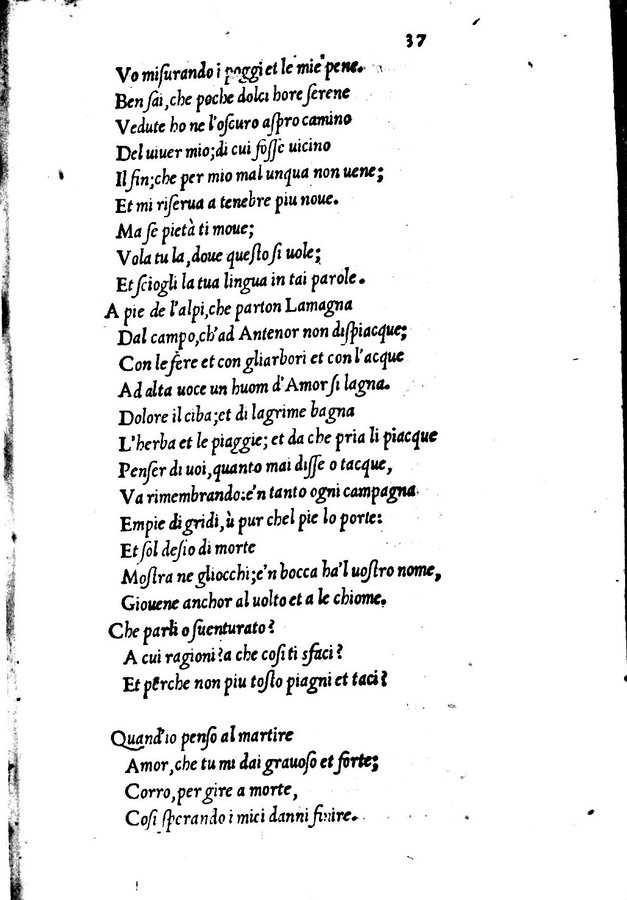 37
Vo miſurando i poggi et le mie pene.
Ben ſai, che poche dolci hore ſerene
Vedute ho ne l'oſcuro aſpro camino
Del uiuer mio; di cui foſſe uicino
Il fin; che per mio mal unqua non uene;
Et mi riſerua a tenebre piu noue.
Ma ſe pietà ti moue;
Vola tu la, doue queſto ſi uole;
Et ſciogli la tua lingua in tai parole.
A pie de l'alpi, che parton Lamagna
Dal campo, ch'ad Antenor non diſpiacque;
Con le fere et con gliarbori et con l'acque
Ad alta uoce un huom d'Amor ſi lagna.
Dolore il ciba; et di lagrime bagna
L'herba et le piaggie; et da che pria li piacque
Penſer di uoi, quanto mai diſſe o tacque,
Va rimembrando: e'n tanto ogni campagna
Empie di gridi, ù pur chel pie lo porte:
Et ſol deſio di morte
Moſtra ne gliocchi; e'n bocca ha'l uoſtro nome,
Giouene anchor al uolto et a le chiome.
Che parli o ſuenturato?
A cui ragioni? a che coſi ti sfaci?
Et perche non piu toſto piagni et taci?
Quand'io penſo al martire
Amor, che tu mi dai grauoſo et forte;
Corro, per gire a morte,
Coſi ſperando i miei danni finire.